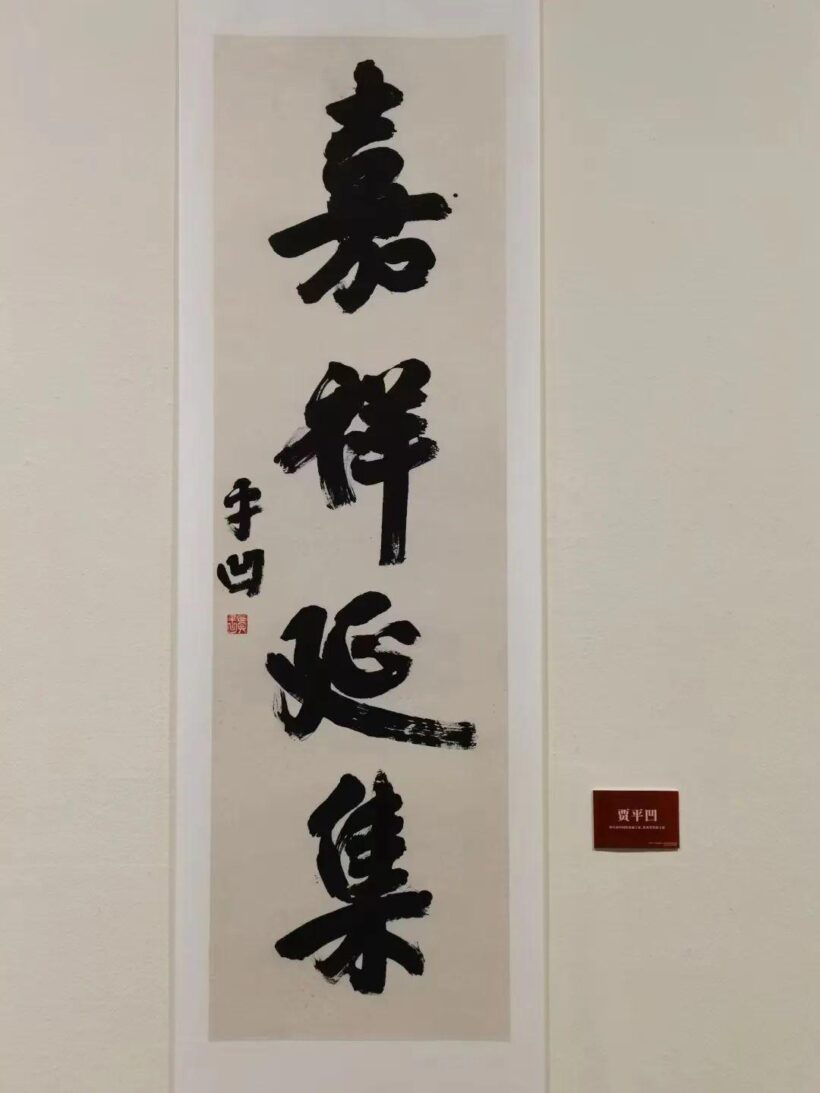 嘉祥延集
平凹
贾平凹